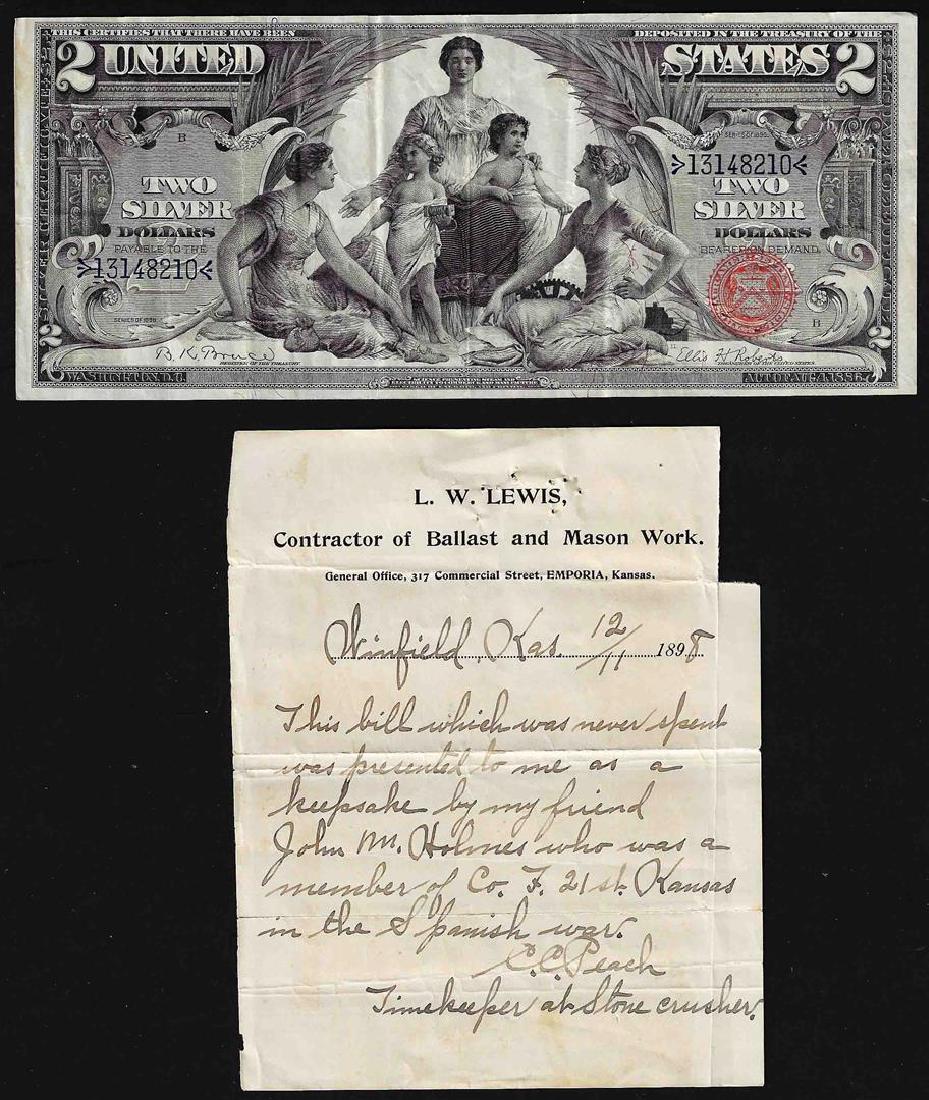 THIS CERTIFIES THAT THERE HAVE BEEN DEPOSITED IN THE TREASURY OF THE
2 UNITED STATES 2
B
SERIES OF 1896.
13148210
TWO TWO
SILVER SILVER
DOLLARS DOLLARS
PAYABLE TO THE BEARER ON DEMAND.
13148210
SERIES OF 1896
B
2 2
B. K. Bruce Ellis H. Roberts
REGISTER OF THE TREASURY. TREASURER OF THE UNITED STATES.
WASHINGTON, D.C. ACT OF AUG. 4, 1886
L. W. LEWIS,
Contractor of Ballast and Mason Work.
General Office, 317 Commercial Street, EMPORIA, Kansas.
Winfield, Kas. 12/11 1898
This bill which was never spent
was presented to me as a
keepsake by my friend
John M. Holmes who was a
member of Co. F. 21st. Kansas
in the Spanish war.
C. C. Peach
Timekeeper at Stone crusher.